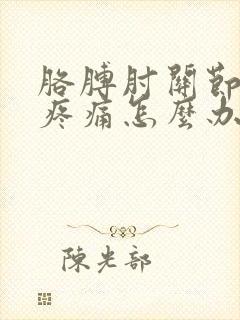 胳膊肘關節
疼痛怎麼办
陳光部